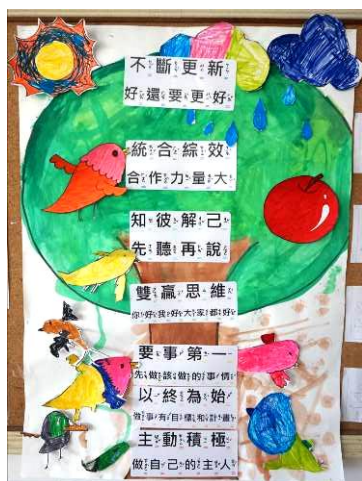 不斷更新
好還要更好
統合綜效
合作力量大
知彼解己
先聽再說
雙贏思維
你好我好大家都好
要事第一
先做該做的事情
以終為始
做事有目標和計畫
主動積極
做自己的主人